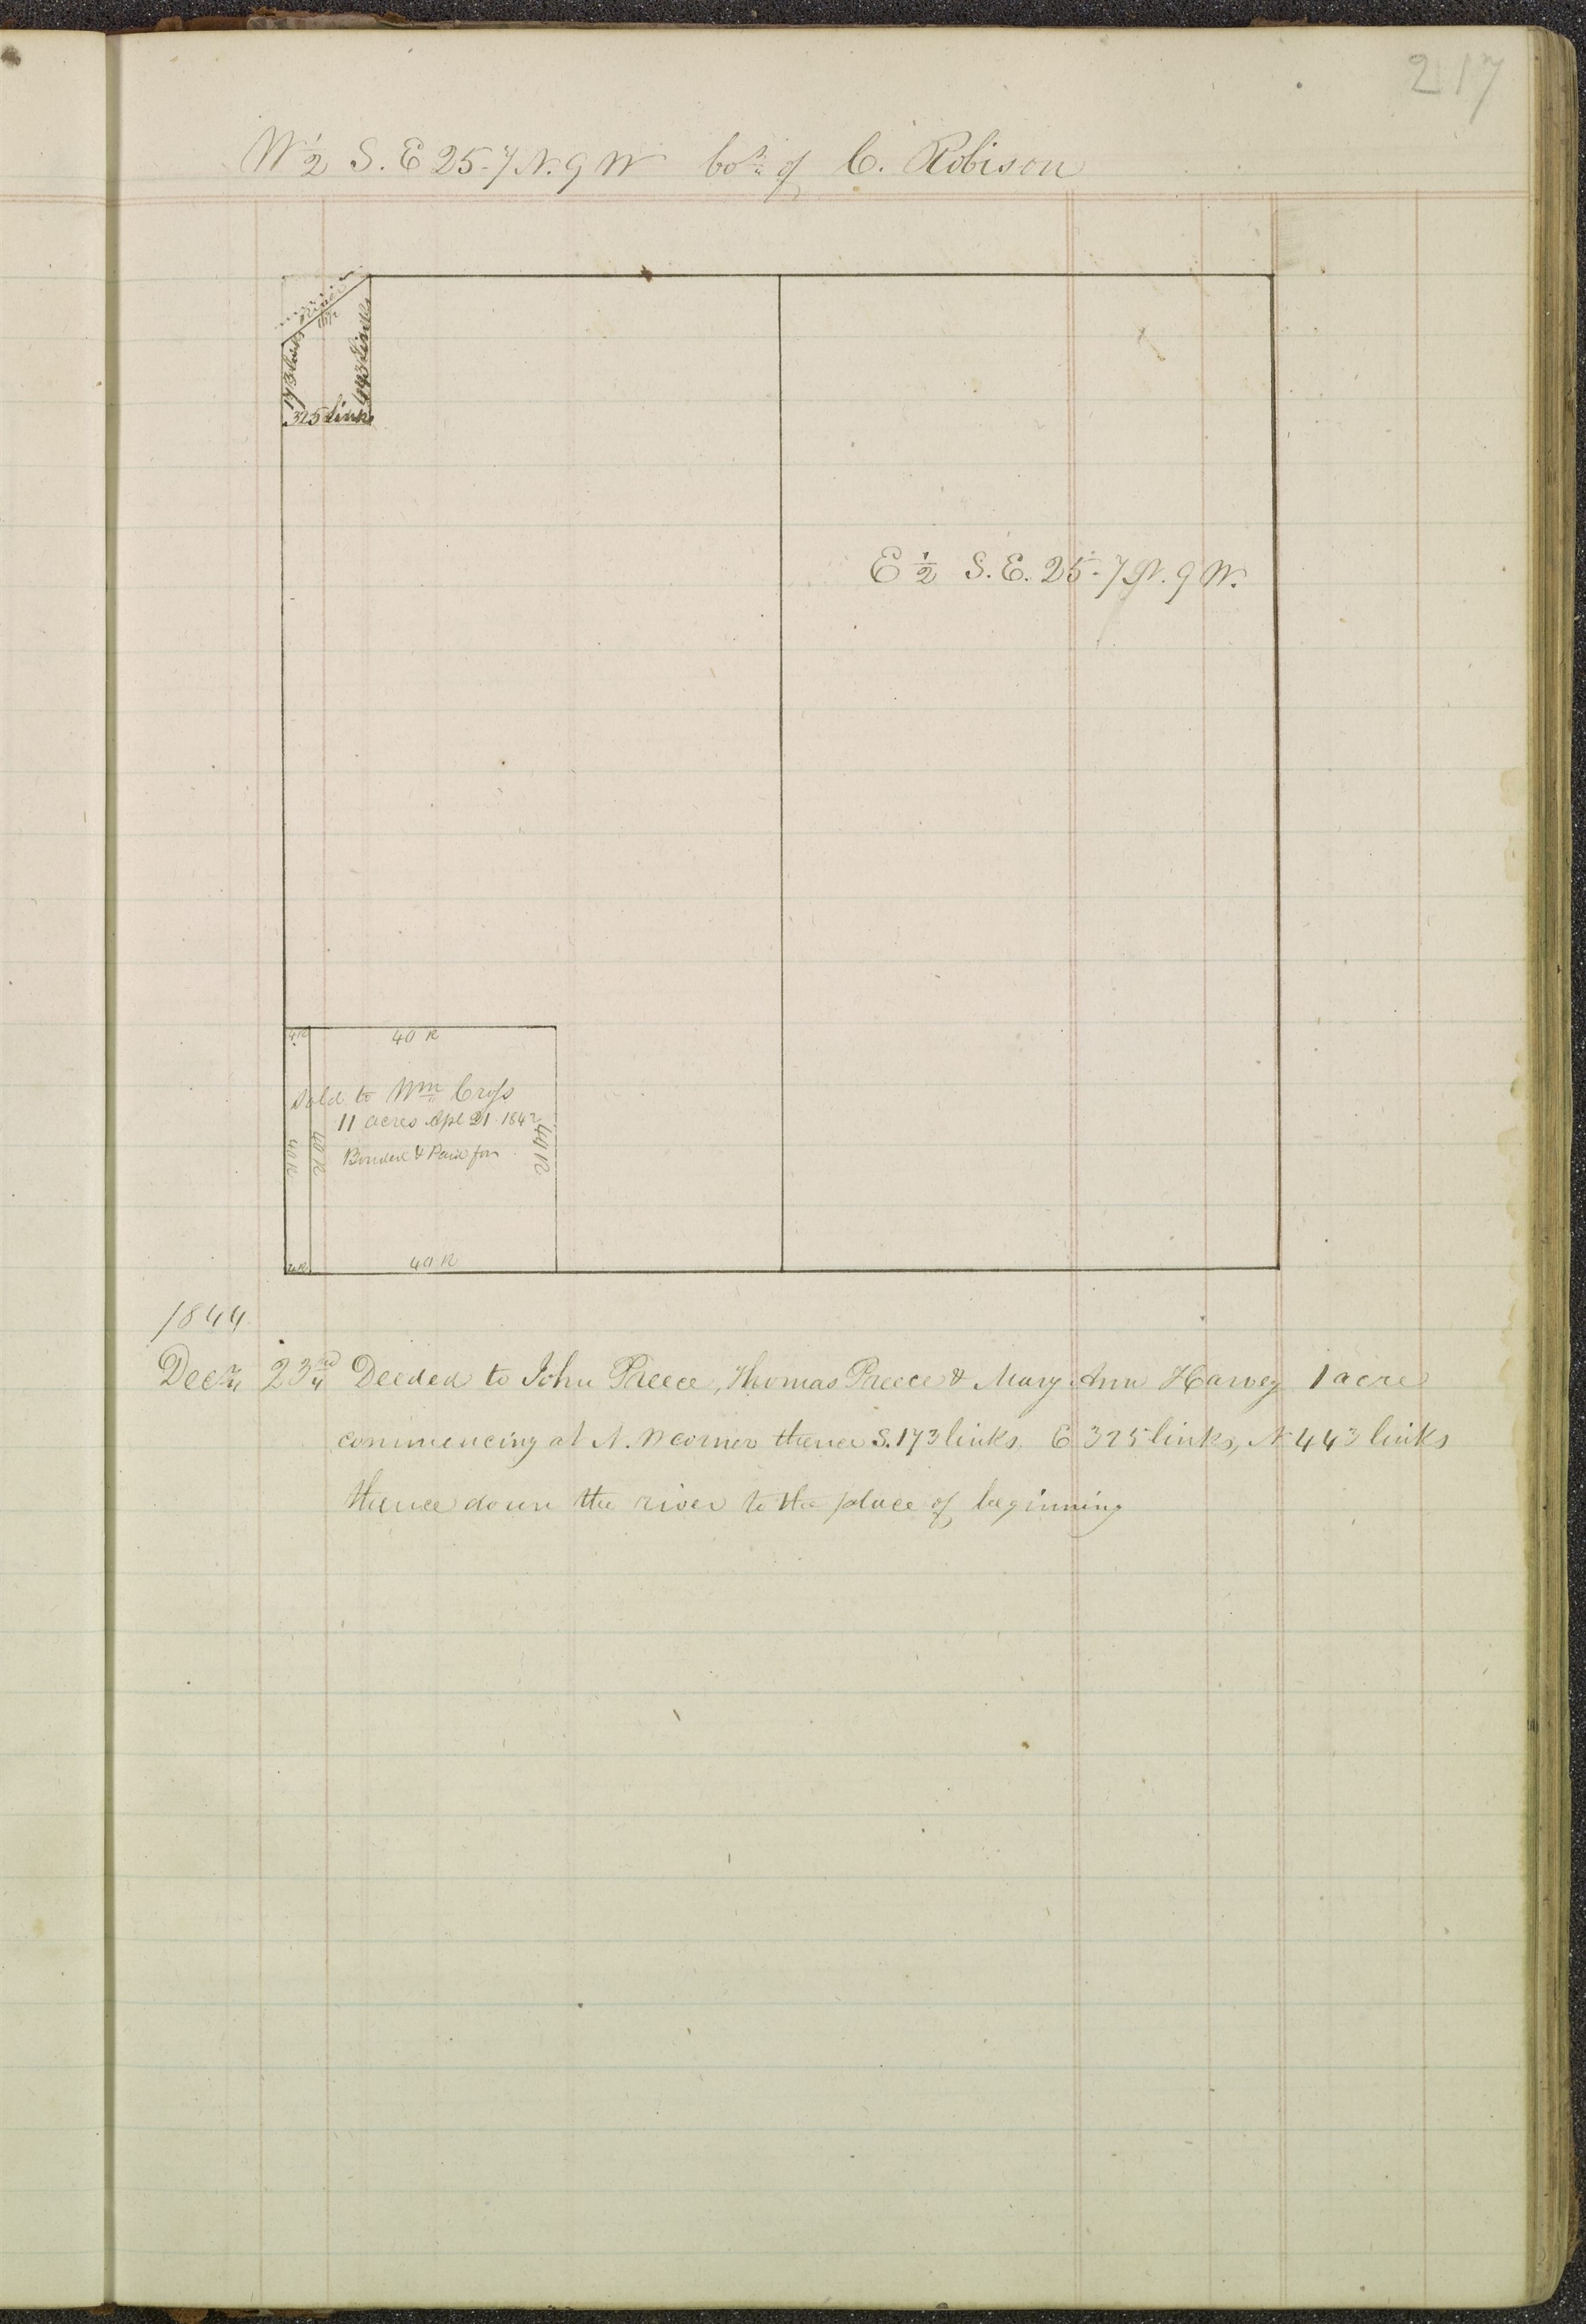 217
W 1/2 S. E 25-7 N. 9 W bot of C. Robison
River
173 links
443 links
325 links
E 1/2 S. E. 25-7 N. 9 W.
4 R
40 R
Sold to Wm Cross
11 acres Apl 21 1842
Bonded & Paid for
40 R
40 R
44 R
4 R
40 R
1844
Decr 23rd Deeded to John Preece, Thomas Preece & Mary Ann Harvey 1 acre
commencing at N. W corner thence S. 173 links, E 325 links, N 443 links
thence down the river to the place of beginning